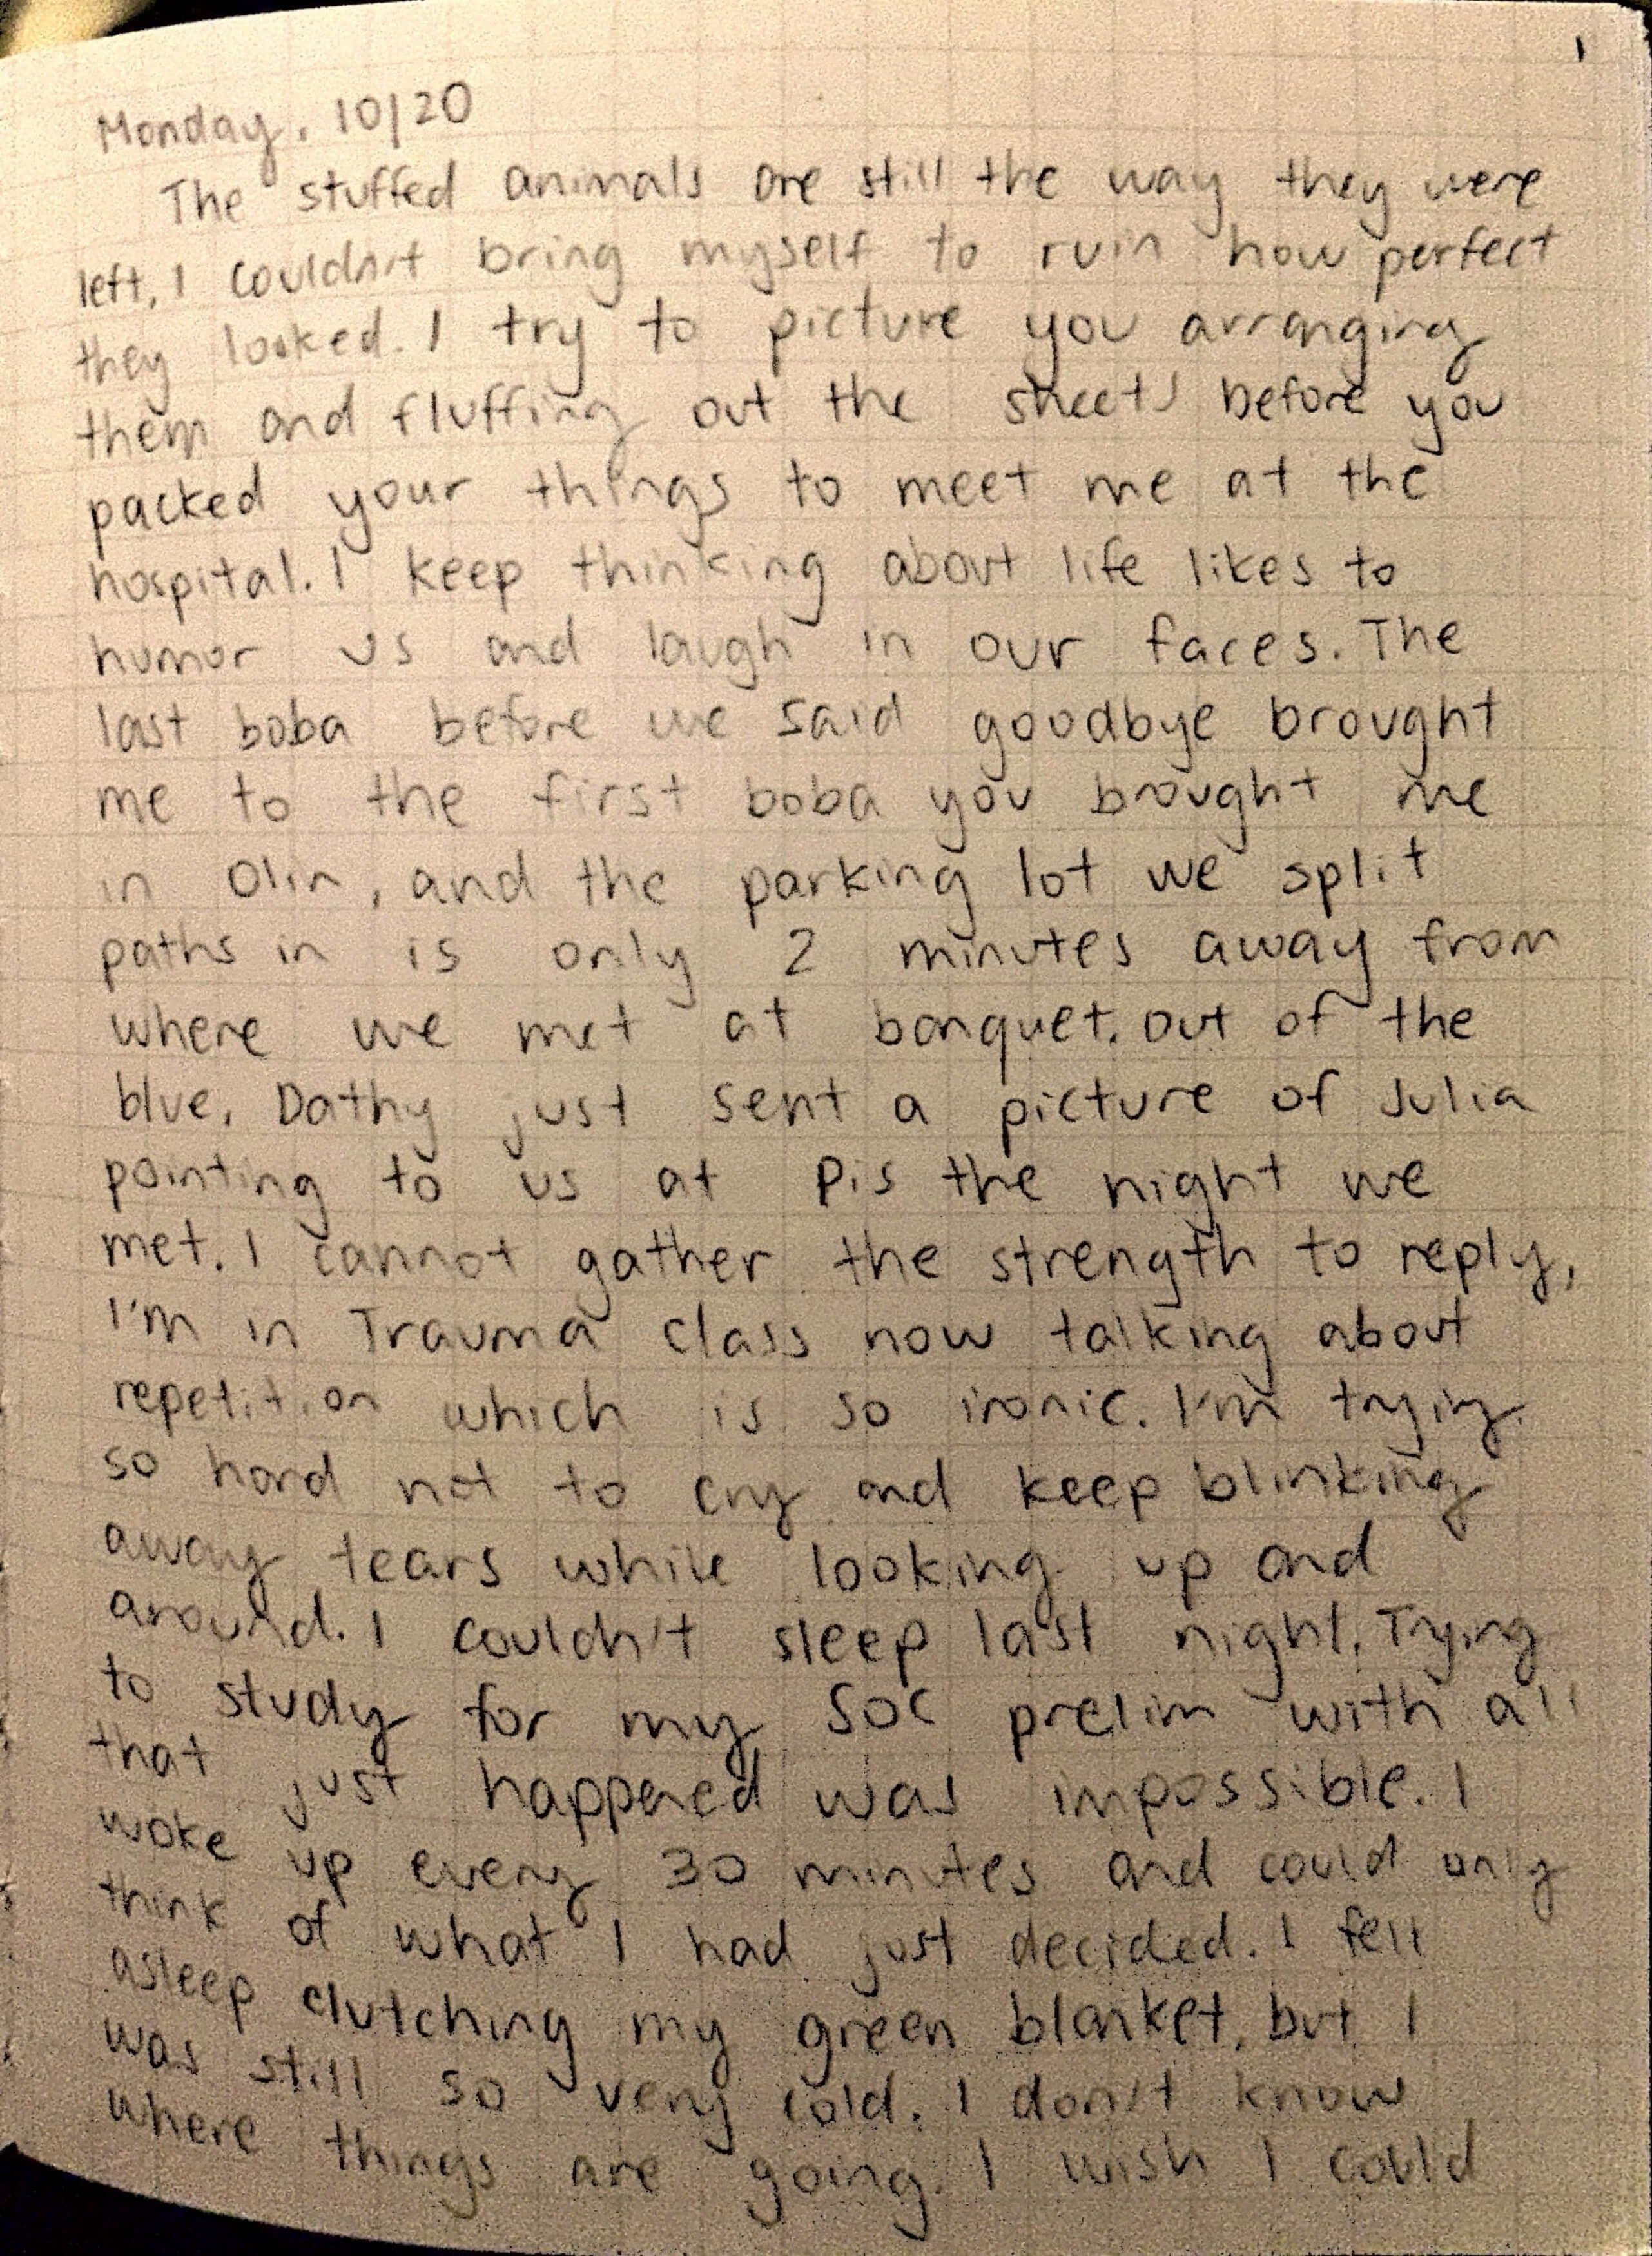 1
Monday, 10/20
The stuffed animals are still the way they were
left, I couldn't bring myself to ruin how perfect
they looked. I try to picture you arranging
them and fluffing out the sheets before you
packed your things to meet me at the
hospital. I keep thinking about life likes to
humor us and laugh in our faces. The
last boba before we said goodbye brought
me to the first boba you brought me
in Olin, and the parking lot we split
paths in is only 2 minutes away from
where we met at banquet. out of the
blue, Dathy just sent a picture of Julia
pointing to us at Pis the night we
met. I cannot gather the strength to reply,
I'm in Trauma class now talking about
repetition which is so ironic. I'm trying
so hard not to cry and keep blinking
away tears while looking up and
around. I couldn't sleep last night. Trying
to study for my SOC prelim with all
that just happened was impossible. I
woke up every 30 minutes and could only
think of what I had just decided. I fell
asleep clutching my green blanket, but I
was still so very cold. I don't know
where things are going. I wish I could